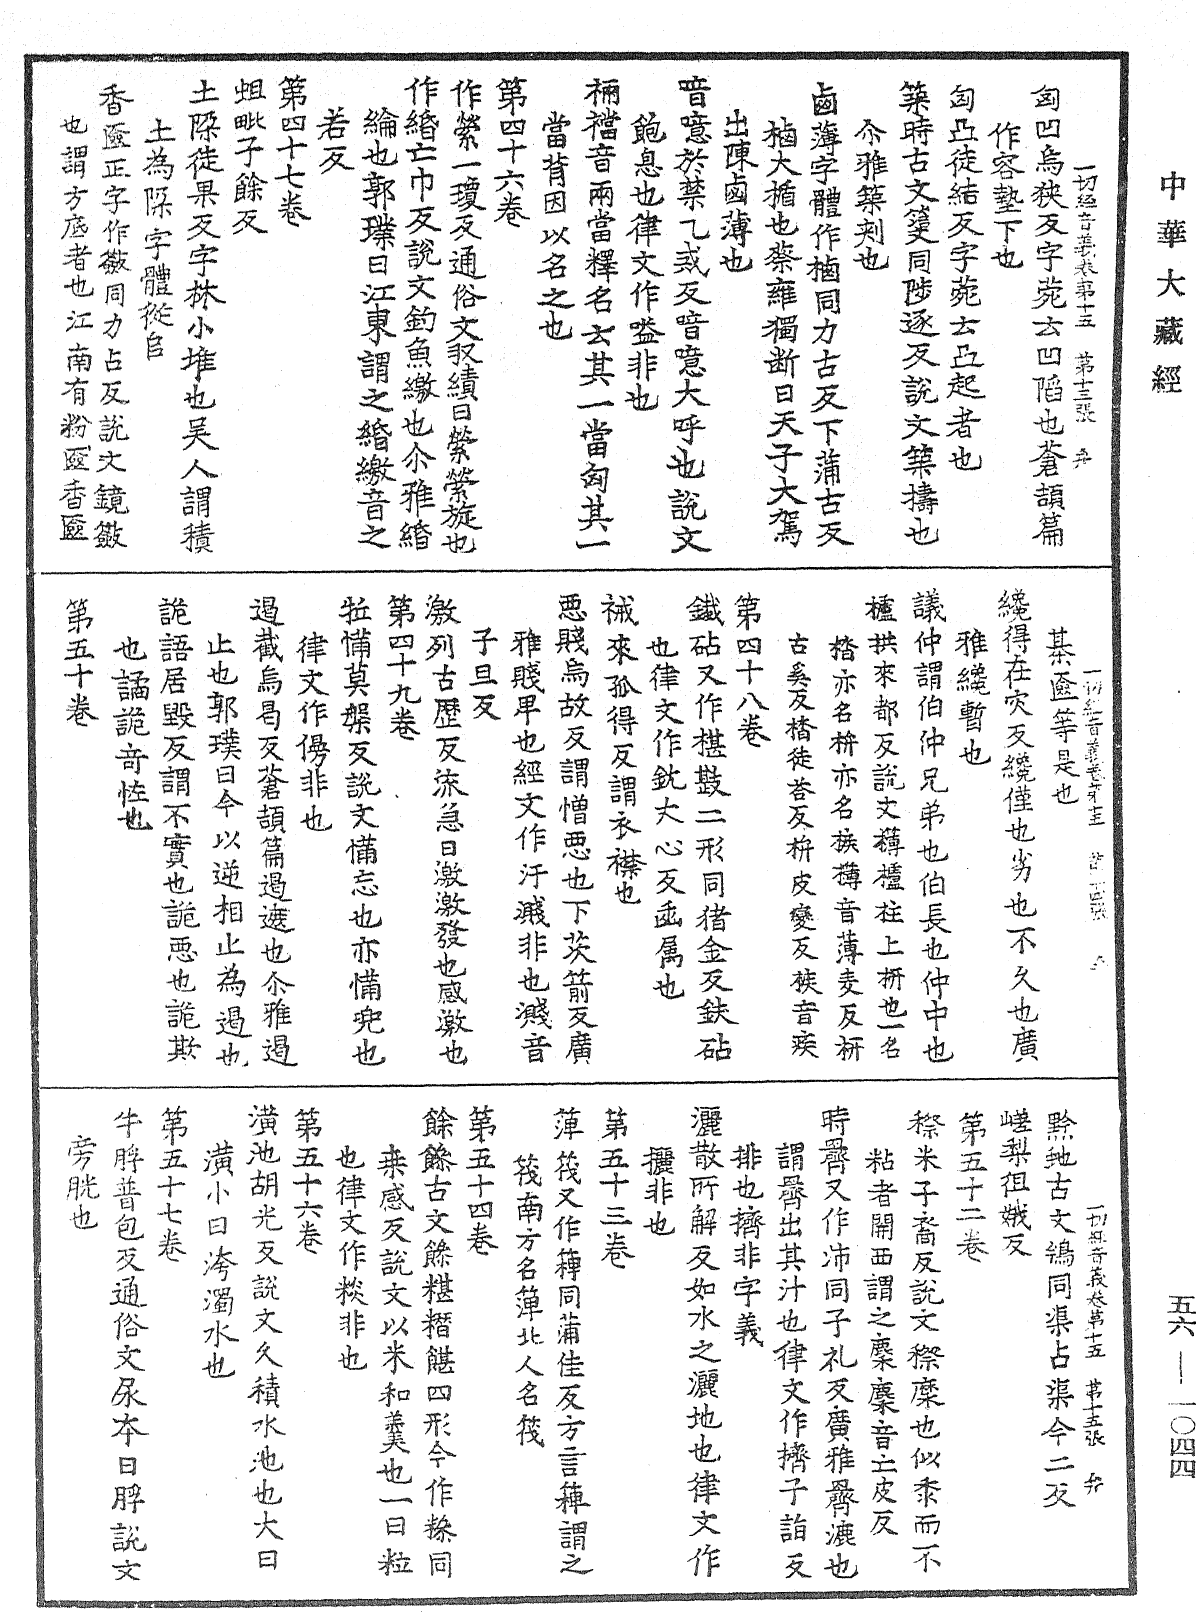 中華大藏經
一切經音義卷第十五 第十三張 弁
匈凹烏狹反字苑云凹陷也蒼頡篇
作容墊下也
匈凸徒結反字苑云凸起者也
築時古文𥳑同陟逐反說文築擣也
尒雅築剌也
鹵薄字體作樐同力古反下蒲古反
樐大楯也蔡雍獨断曰天子大駕
出陳鹵薄也
喑噫於禁乙戒反喑噫大呼也說文
飽息也律文作嗌非也
裲襠音兩當釋名云其一當匈其一
當背因以名之也
第四十六卷
作縈一瓊反通俗文収績曰縈縈旋也
作緡亡巾反說文釣魚繳也尒雅緡
綸也郭璞曰江東謂之緡繳音之
若反
第四十七卷
蛆毗子餘反
土𨹃徒果反字林小堆也吴人謂積
土為𨹃字體從𨸏
香匳正字作籢同力占反說文鏡籢
也謂方底者也江南有粉匳香匳
綦匳等是也
一切經音義卷第十五 第十四張 弁
纔得在灾反纔僅也劣也不久也廣
雅纔暫也
議仲謂伯仲兄弟也伯長也仲中也
櫨拱來都反說文欂櫨柱上枅也一名
㭼亦名枅亦名㭼欂音薄麦反枅
古奚反㭼徒荅反枅皮變反㭼音疾
第四十八卷
鐵砧又作椹㪣二形同猪金反鈇砧
也律文作鈂大心反臿属也
裓來孤得反謂衣襟也
惡賤烏故反謂憎惡也下茨箭反廣
雅賤卑也經文作汙濺非也濺音
子旦反
激列古歷反流急曰激激發也感激也
第四十九卷
㸬㒼莫槃反說文㒼忘也亦㒼兜也
律文作傍非也
遏截烏曷反蒼頡篇遏遮也尒雅遏
止也郭璞曰今以逆相止為遏也
詭語居毀反謂不實也詭惡也詭欺
也譎詭奇恠也
第五十卷
一切經音義卷第十五 第十五張 弁
黔虵古文鳹同渠占渠今二反
嵯梨徂娥反
第五十二卷
穄米子裔反說文穄穈也似黍而不
粘者關西謂之穈穈音亡皮反
時𣿐又作泲同子礼反廣雅𣿐漉也
謂𣿐出其汁也律文作擠子詣反
排也擠非字義
灑散所解反如水之灑地也律文作
攦非也
第五十三卷
箄筏又作𥴖同蒲佳反方言𥴖謂之
筏南方名箄北人名筏
第五十四卷
餘䊉古文䊉糂糣䭃四形今作糝同
桒感反說文以米和羹也一曰粒
也律文作糉非也
第五十六卷
潢池胡光反說文久積水池也大曰
潢小曰洿濁水也
第五十七卷
牛脬普包反通俗文尿夲曰脬說文
旁胱也
五六—一〇四四